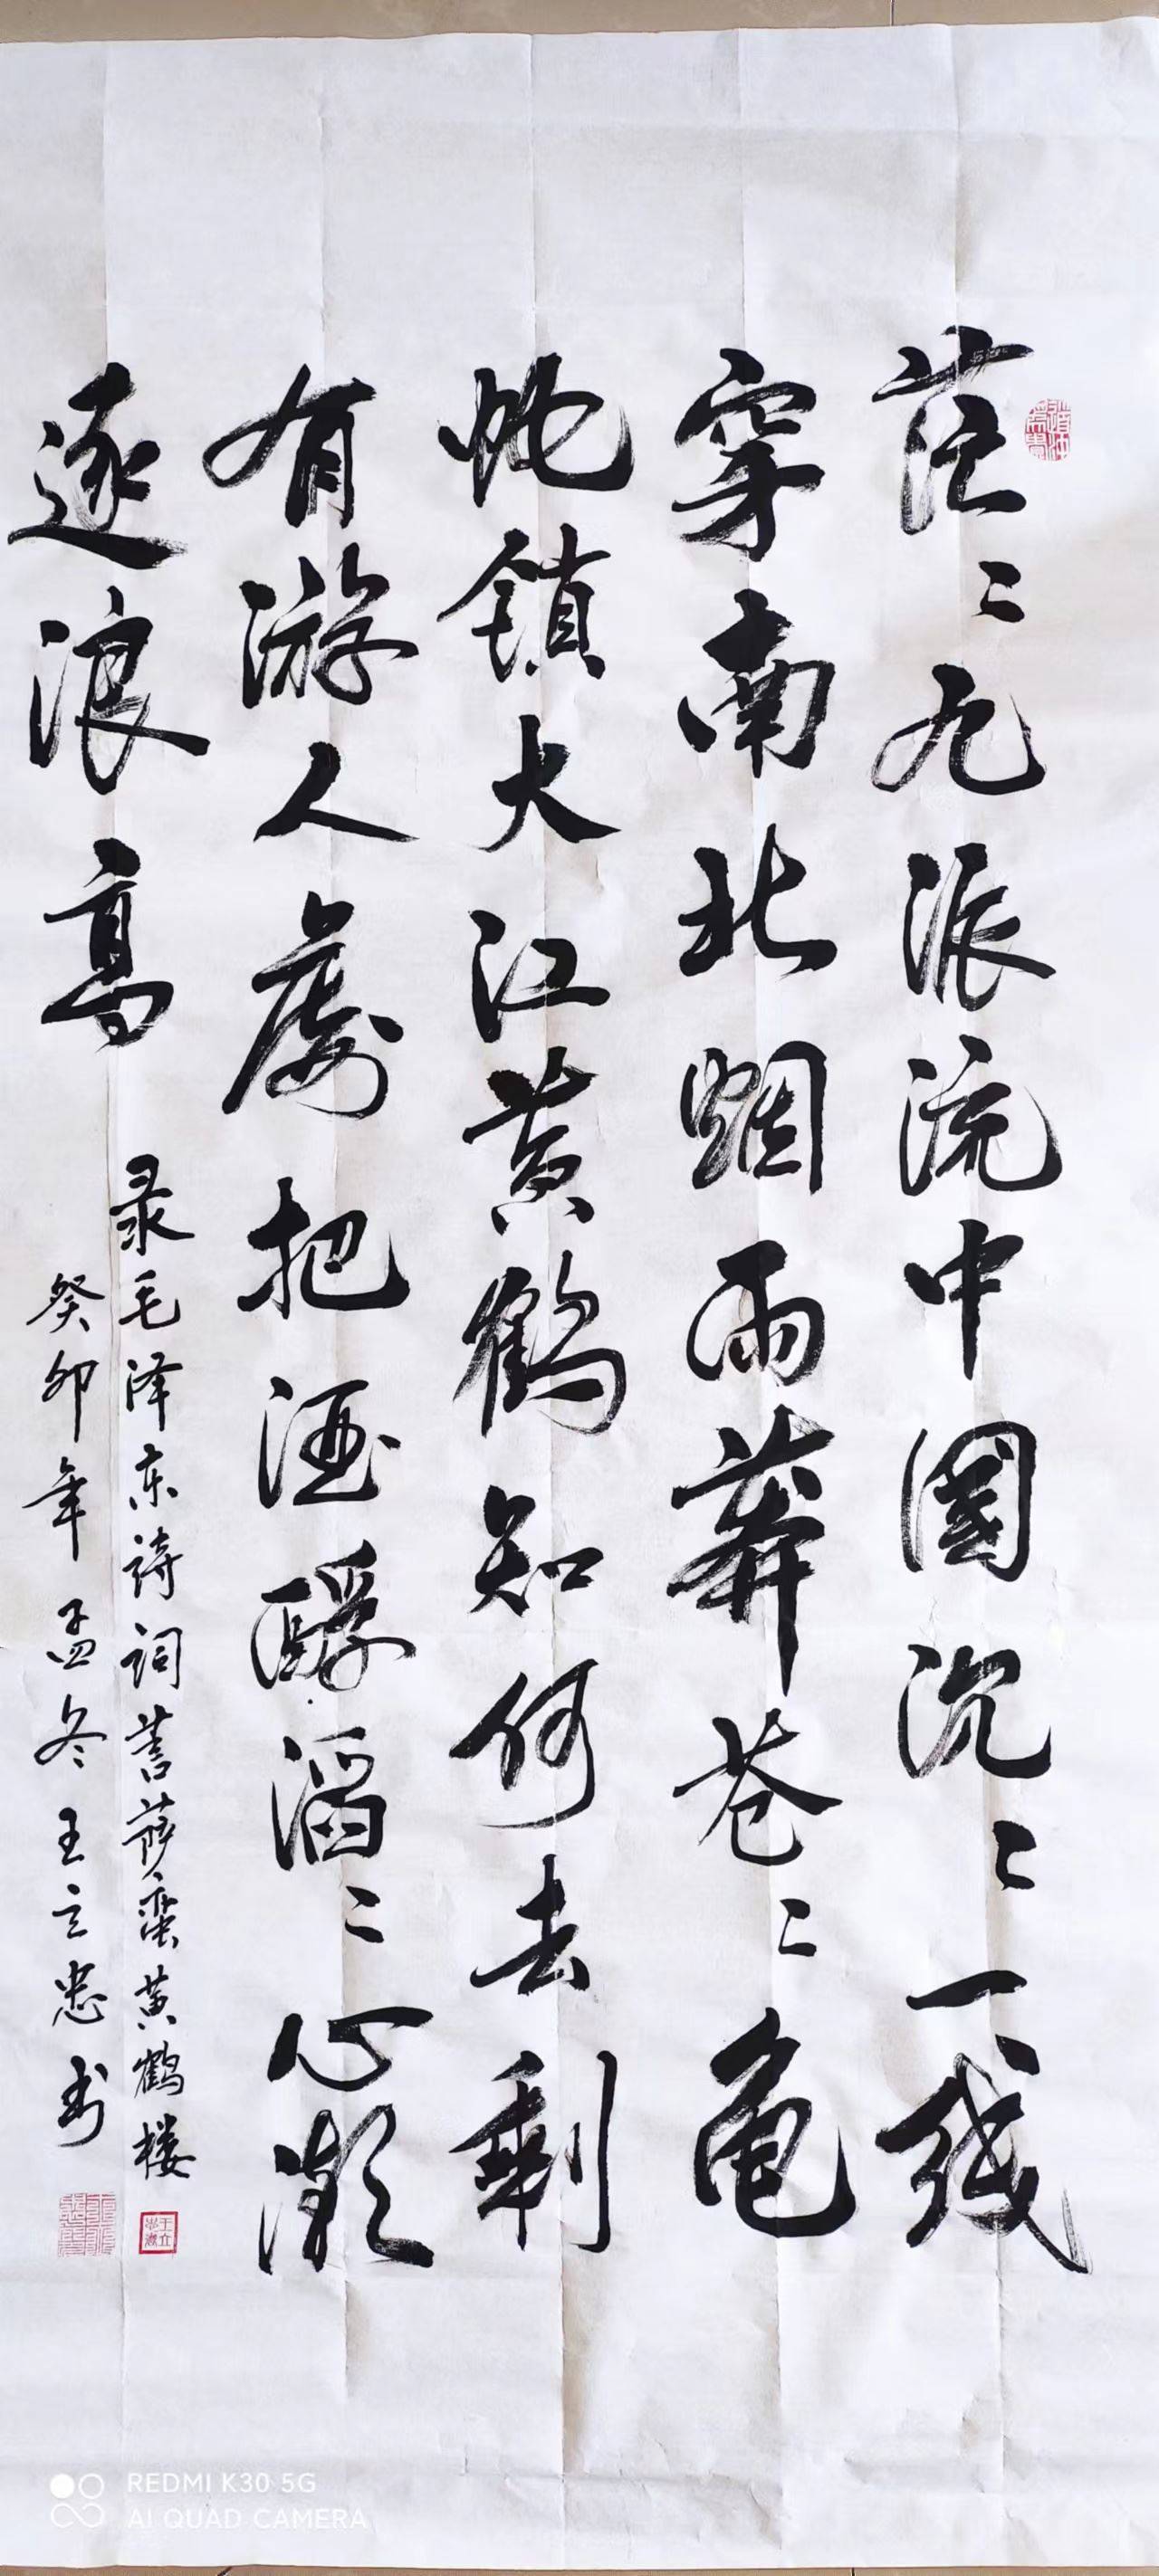 茫〻九派流中國沉〻一线
穿南北烟雨莽苍〻龟
蛇鎖大江黄鹤知何去剩
有游人處把酒酹滔〻心潮
逐浪高
录毛泽东诗词菩萨蛮黄鹤楼
癸卯年孟冬王立忠书
REDMI K30 5G
AI QUAD CAMERA